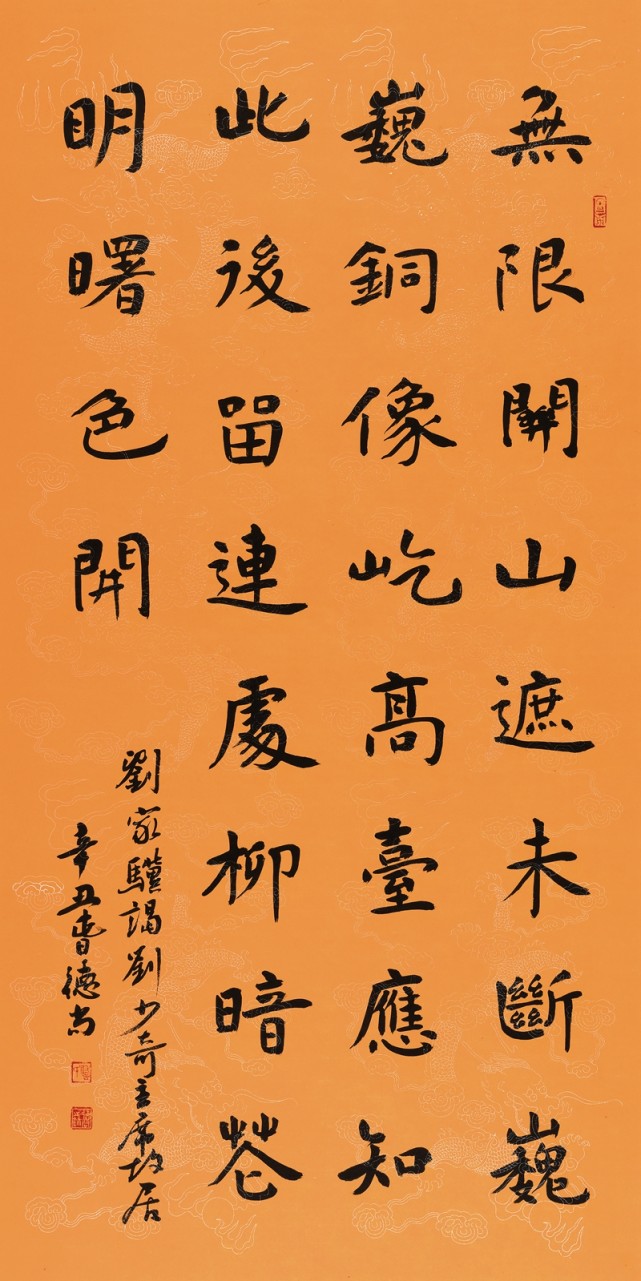 無限關山遮未斷巍
巍銅像屹高臺應知
此後留連處柳暗花
明曙色開
劉家驥謁劉少奇主席故居
辛丑德尚